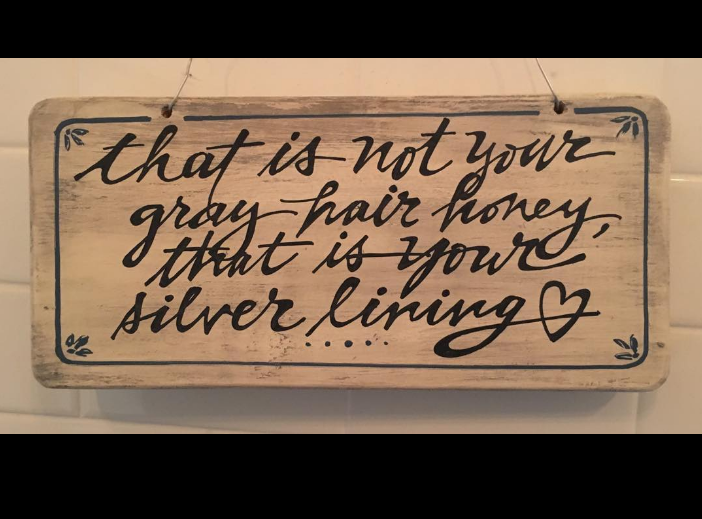 that is not your
gray hair honey,
that is your
silver lining